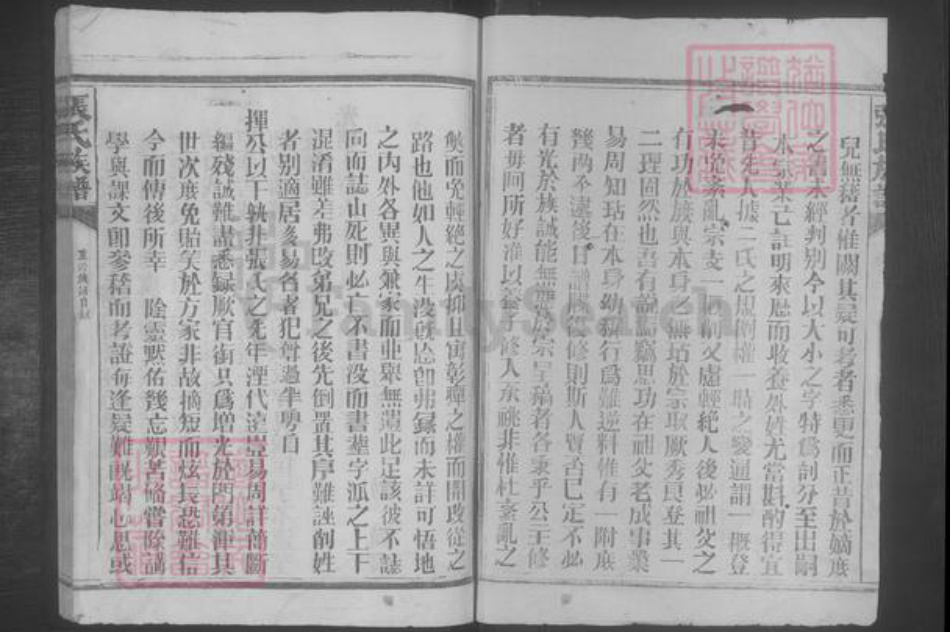 張氏族譜
兒無藉者惟闕其疑可考者悉更而正昔於嫡庶
之舊未經判別今以大小之字特爲剖分至出嗣
本宗業已註明來歷而收養外姓尤當斟酌得宜
昔先人據二氏之規例權一時之變通謂一概登
未免紊亂宗支一概削又慮輕絶人後必祖父之
有功於族與本身之無玷於宗取厥秀良登其一
二理固然也吾有說焉竊思功在祖父老成事業
易周知玷在本身幼穉行爲難逆料惟有一附底
幾兩不違後日譜牒修則斯人賢否已定不必
有光於族誠能無無於宗呈稿者各秉乎公主修
者毋阿所好准以養子修入永祧非惟杜紊亂之
獘而免輕絶之虞抑且寓彰癉之權而開改從之
路也他如人之生没旣忘卽弗錄而未詳可悟地
之內外各異與兼家而並舉無薀此足該彼不誌
向而誌山死則必亡不書没而書塟字派之上下
混淆雖差弗改第兄之後先倒置其序難誣削姓
者别適居多易名者犯聲過半粤自
揮公以下孰非張氏之先年湮代遠豈易周詳簡斷
編殘誠難盡悉録厥官銜只爲增光於閥第渾其
世次庶免貽笑於方家非故摘短而炫長恐難信
今而傳後所幸 陰靈默佑幾忘艱苦偹嘗除講
學與課文卽參稽而考證每逢疑難旣竭心思或
張氏族譜
FamilySearch